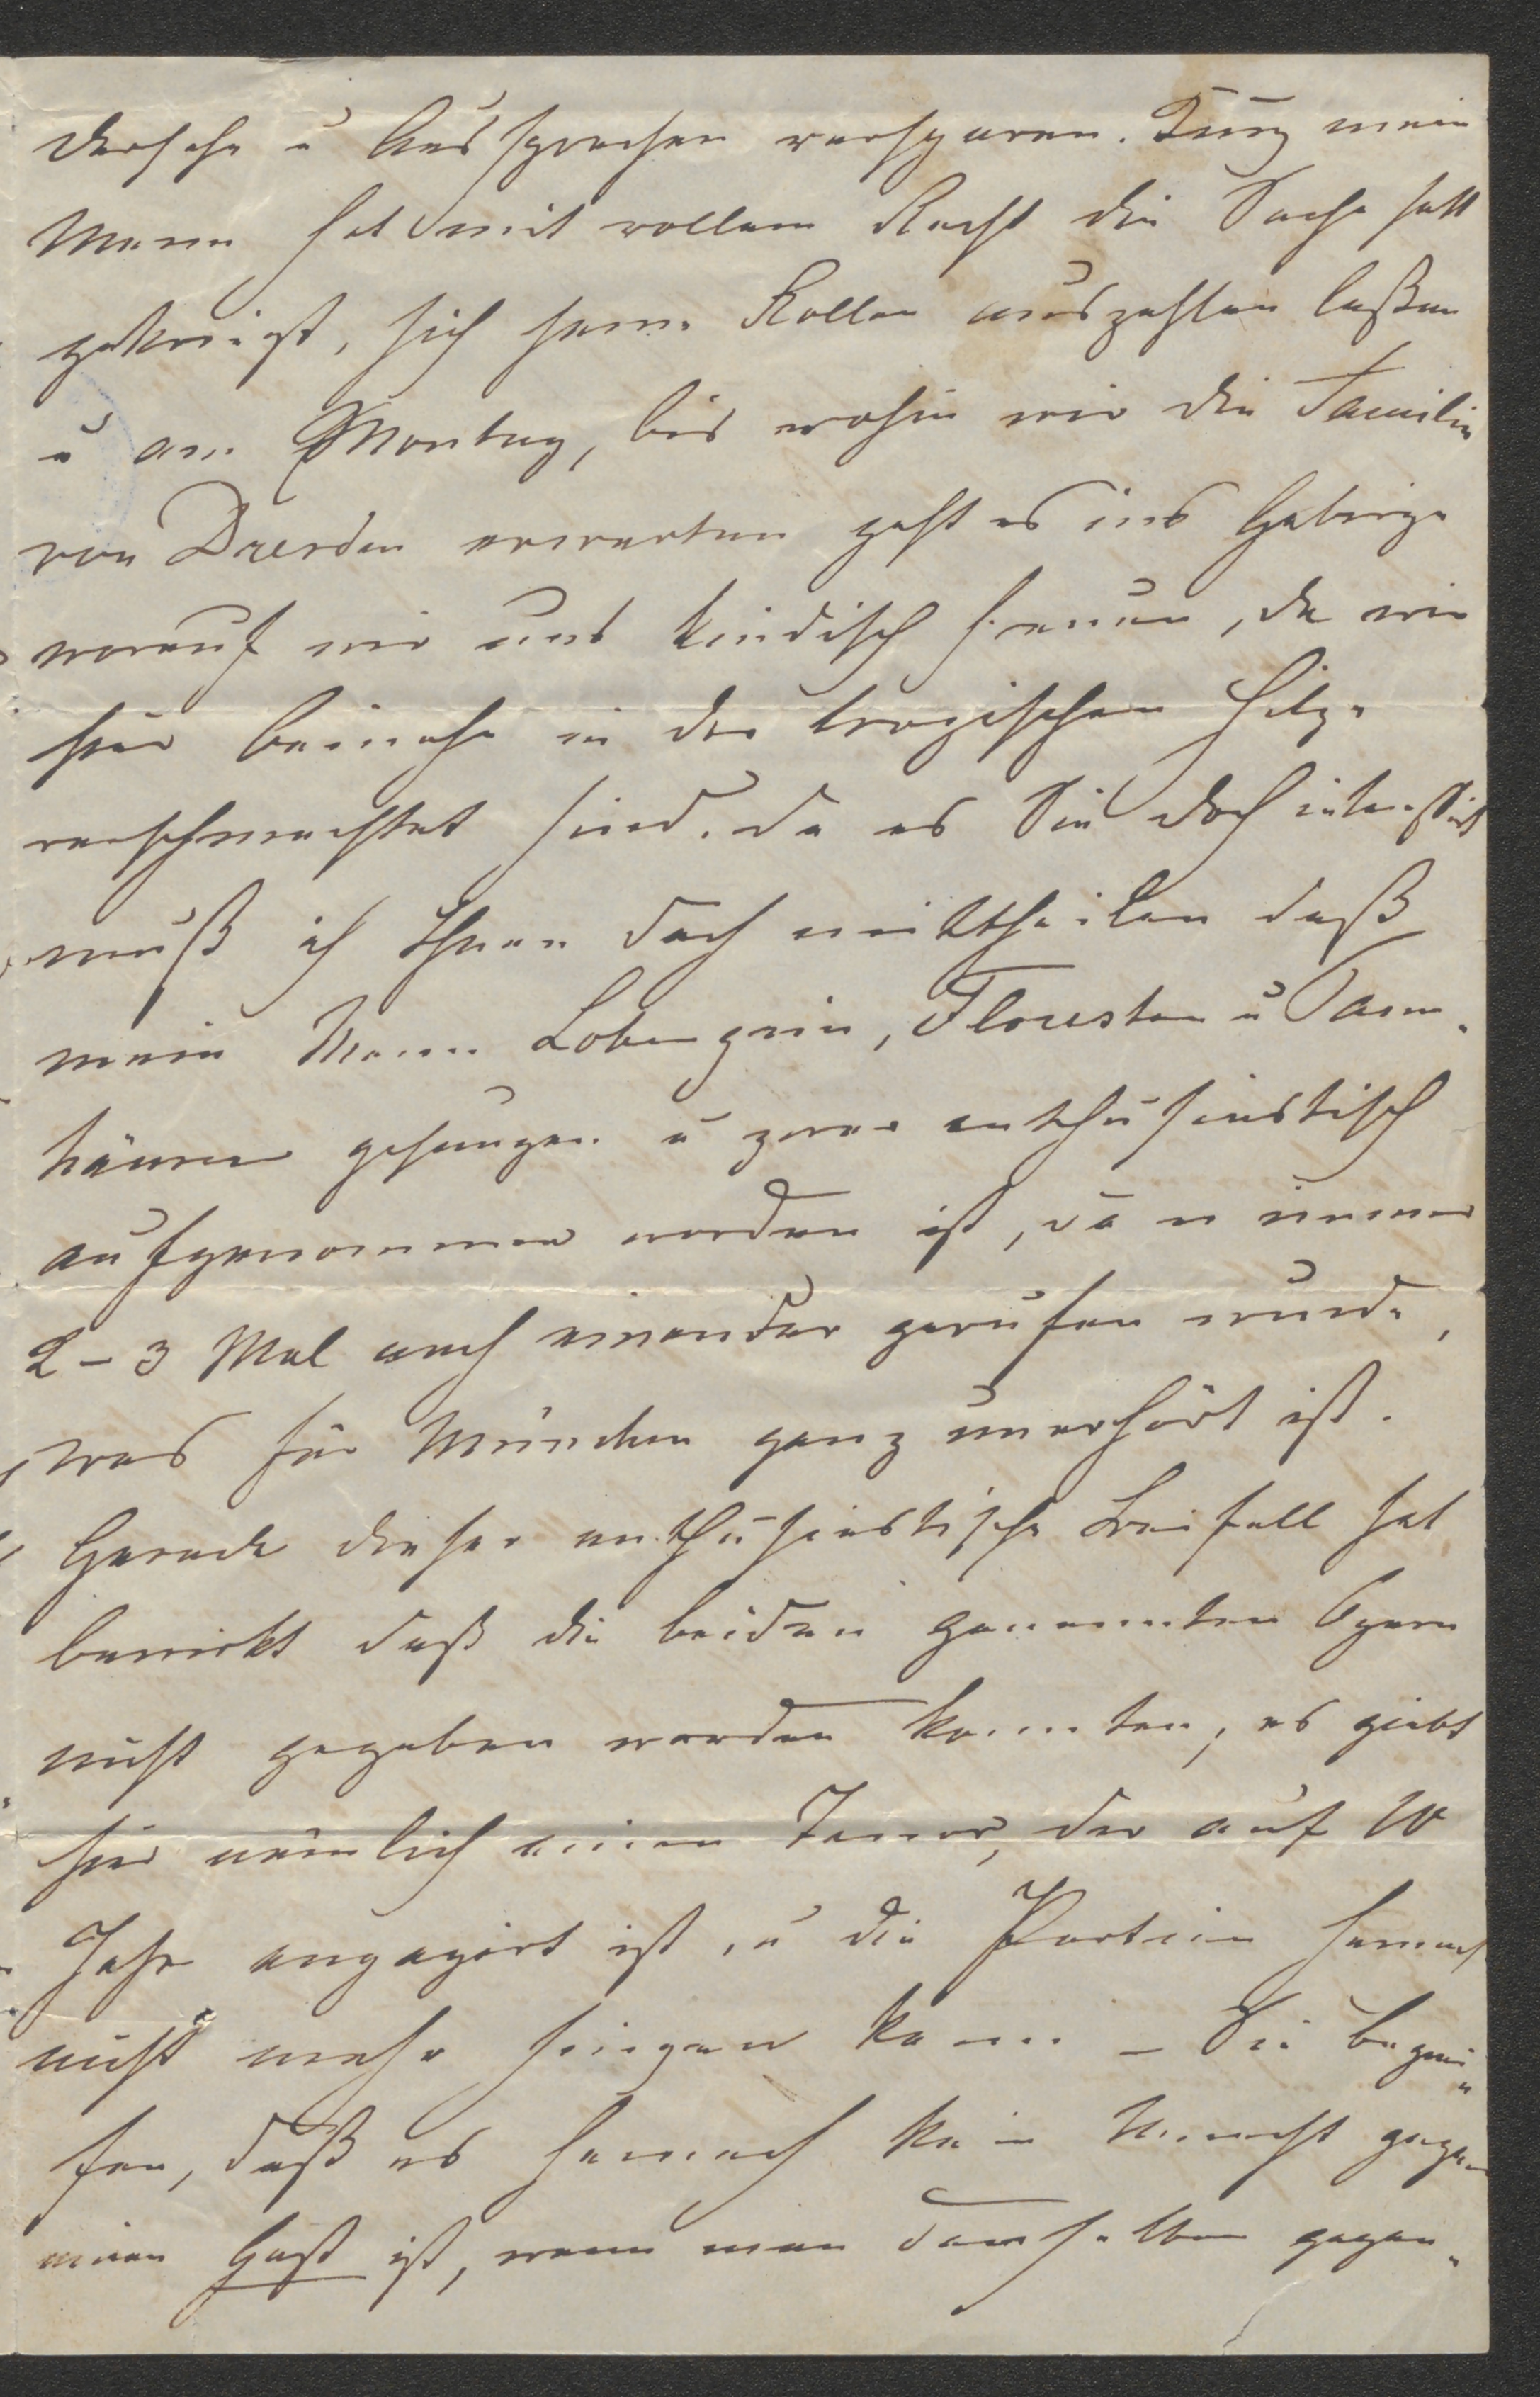 dersehn u Aussprechen versparen. Kurz mein
Mann hat mit vollem Recht die Sache satt
gekriegt, sich seine Rollen auszahlen laßen
u am Montag, bis wohin wir die Familie
von Dresden erwarten geht es ins Gebirge
worauf wir uns kindisch freuen, da wir
hier beinahe in der tropischen Hitze
verschmachtet sind. Da es Sie doch interessirt
muß ich Ihnen doch mittheilen daß
mein Mann Lohengrin, Florestan u Tann-
häuser gesungen u zwar enthusiastisch
aufgenommen worden ist, da er immer
2-3 Mal nach einander gerufen wurde,
was für München ganz unerhört ist.
Gerade dieser enthusiastische Beifall hat
bewirkt daß die beiden genannten Opern
nicht gegeben werden konnten, es giebt
hier nämlich einen Tenor, der auf 10
Jahr engagirt ist, u die Partien hernach
nicht mehr singen kann – Sie begrei-
fen, daß es hernach kein Unrecht gegen
einen Gast ist, wenn man demselben gegen-